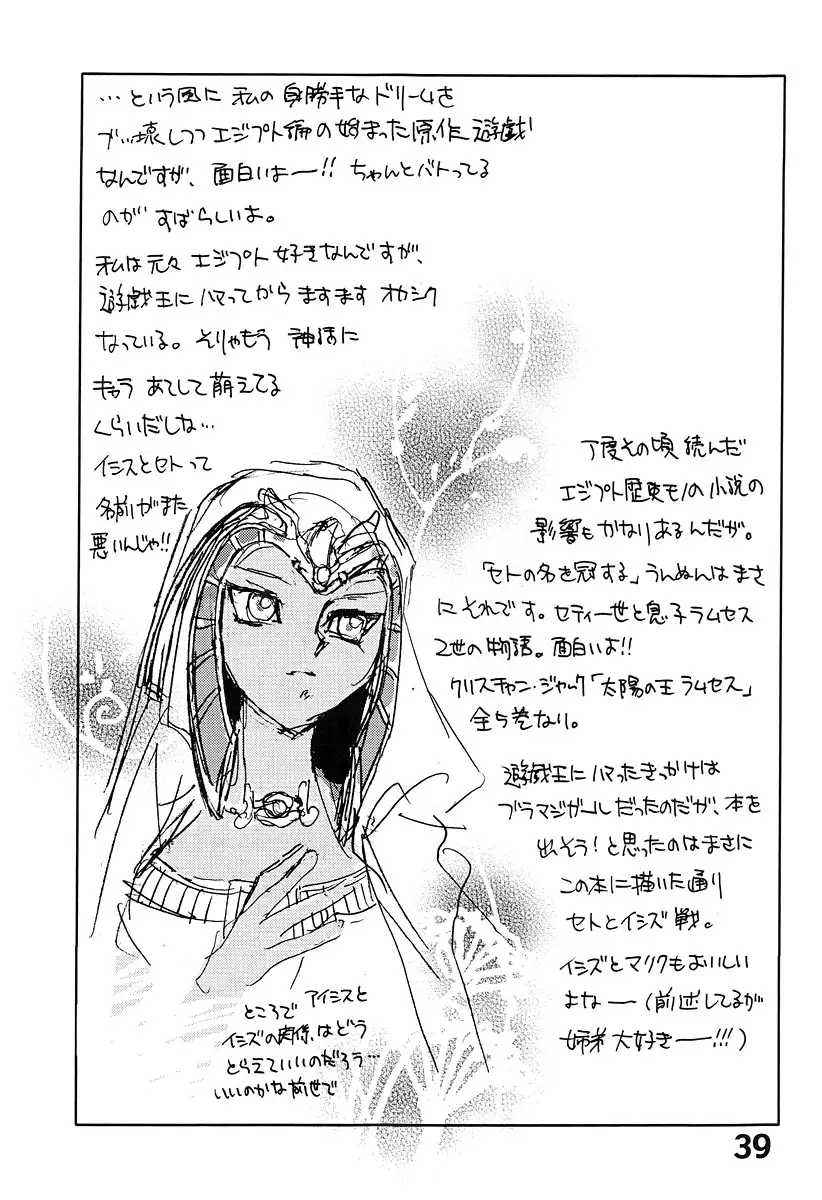 …という風に 私の身勝手なドリームを
ブッ壊しつつエジプト編の始まった原作遊戯
なんですが、面白いよー!! ちゃんとバトってる
のが すばらしいよ。
私は元々 エジプト好きなんですが、
遊戯王にハマってから ますます オカシク
なっている。そりゃもう 神話に
きょうあてして萌えてる
くらいだしな…
イシスとセトって
名前がまた
悪いんじゃ!!
丁度その頃 読んだ
エジプト歴史モノの小説の
影響もかなりあるんだが。
「セトの名を冠する」うんぬんはまさ
にそれです。セティ一世と息子ラムセス
2世の物語。面白いよ!!
クリスチャン・ジャック「太陽の王 ラムセス」
全5巻なり。
遊戯王にハマったきっかけは
ブラマジガールだったのだが、本を
出そう!と思ったのはまさに
この本に描いた通り
セトとイシズ戦。
イシズとマリクもおいしい
よなー(前述してるが
姉弟大好きー!!!)
ところで アイシスと
イシズの関係はどう
とらえていいのだろう…
いいのかな前世で
39